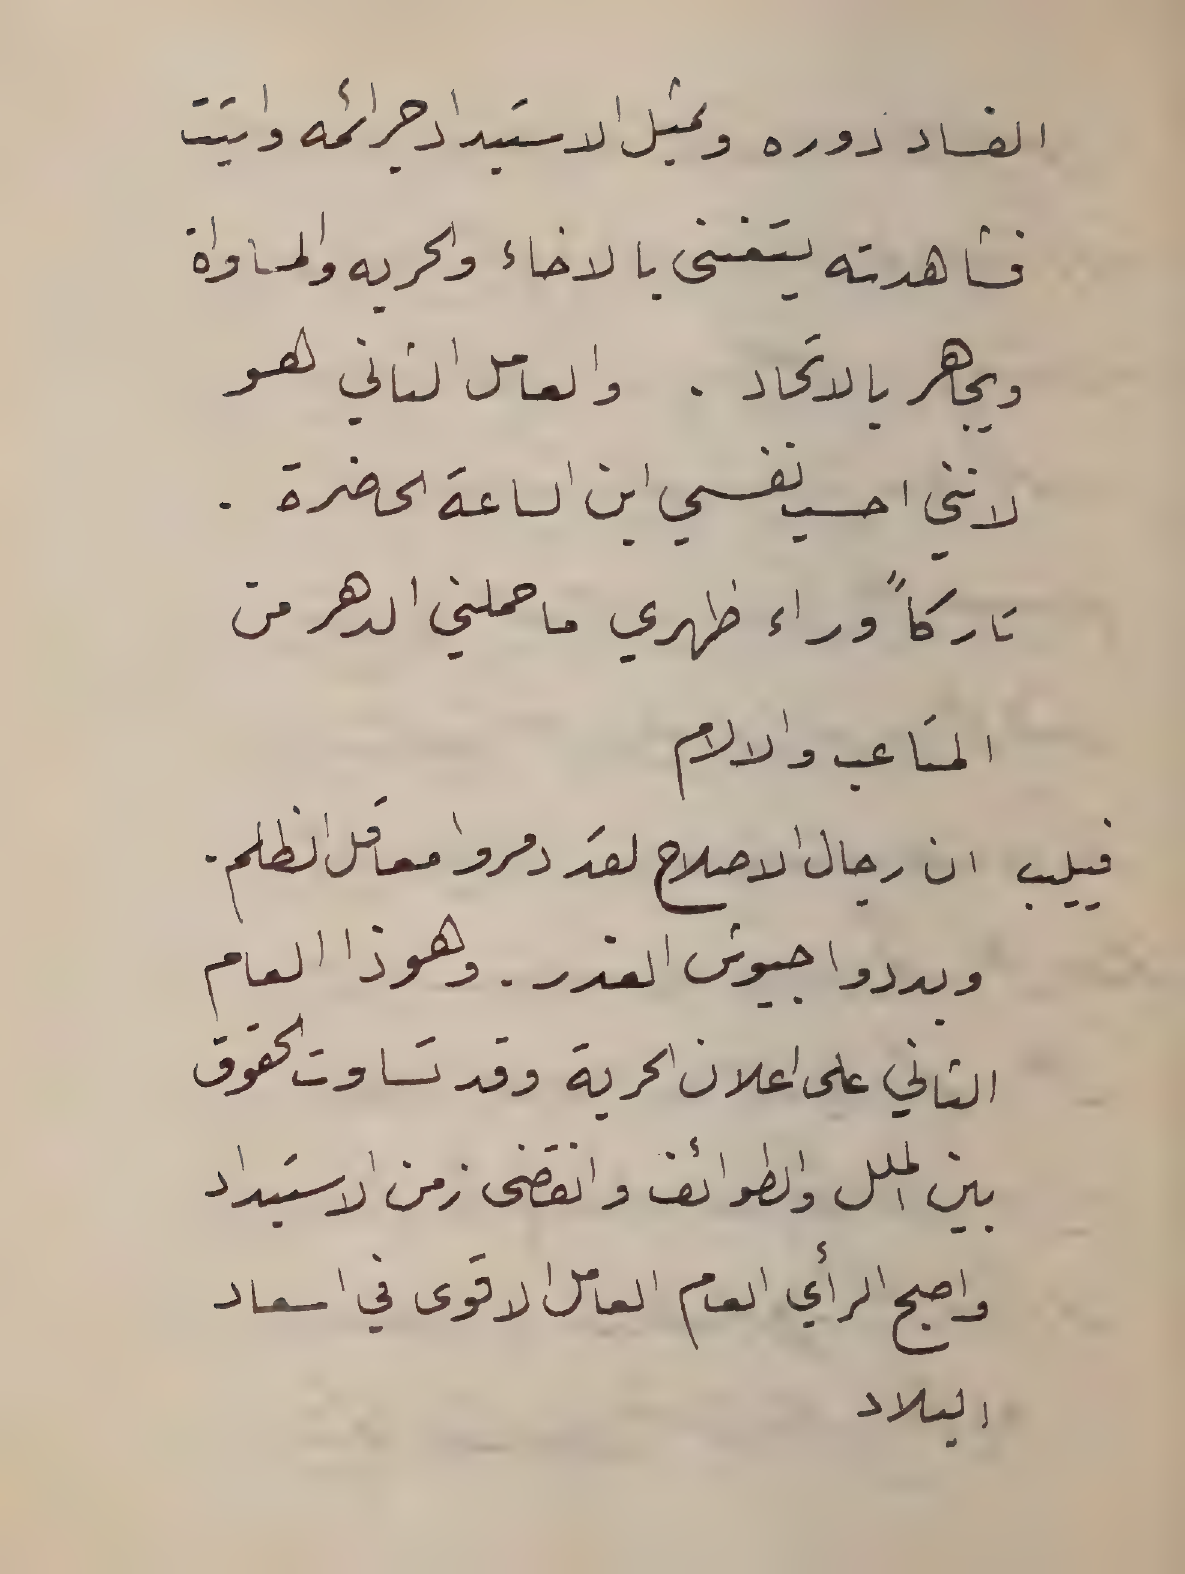 الفساد دوره ويمثل الاستبداد جرائمه واتيت
فشاهدته يتغنى بالاخاء والحريه والمساواة
ويجاهر بالاتحاد . والعامل الثاني هو
لانني احسب نفسي ابن الساعة الحاضرة .
تاركاً وراء ظهري ما حملني الدهر من
المتاعب والالام
فيليب ان رجال الاصلاح لقد دمروا معاقل الظلم .
وبددوا جيوش الغدر . وهوذا العام
الثاني على اعلان الحرية وقد تساوت الحقوق
بين الملل والطوائف وانقضى زمن الاستبداد
واصبح الرأي العام العامل الاقوى في اسعاد
البلاد